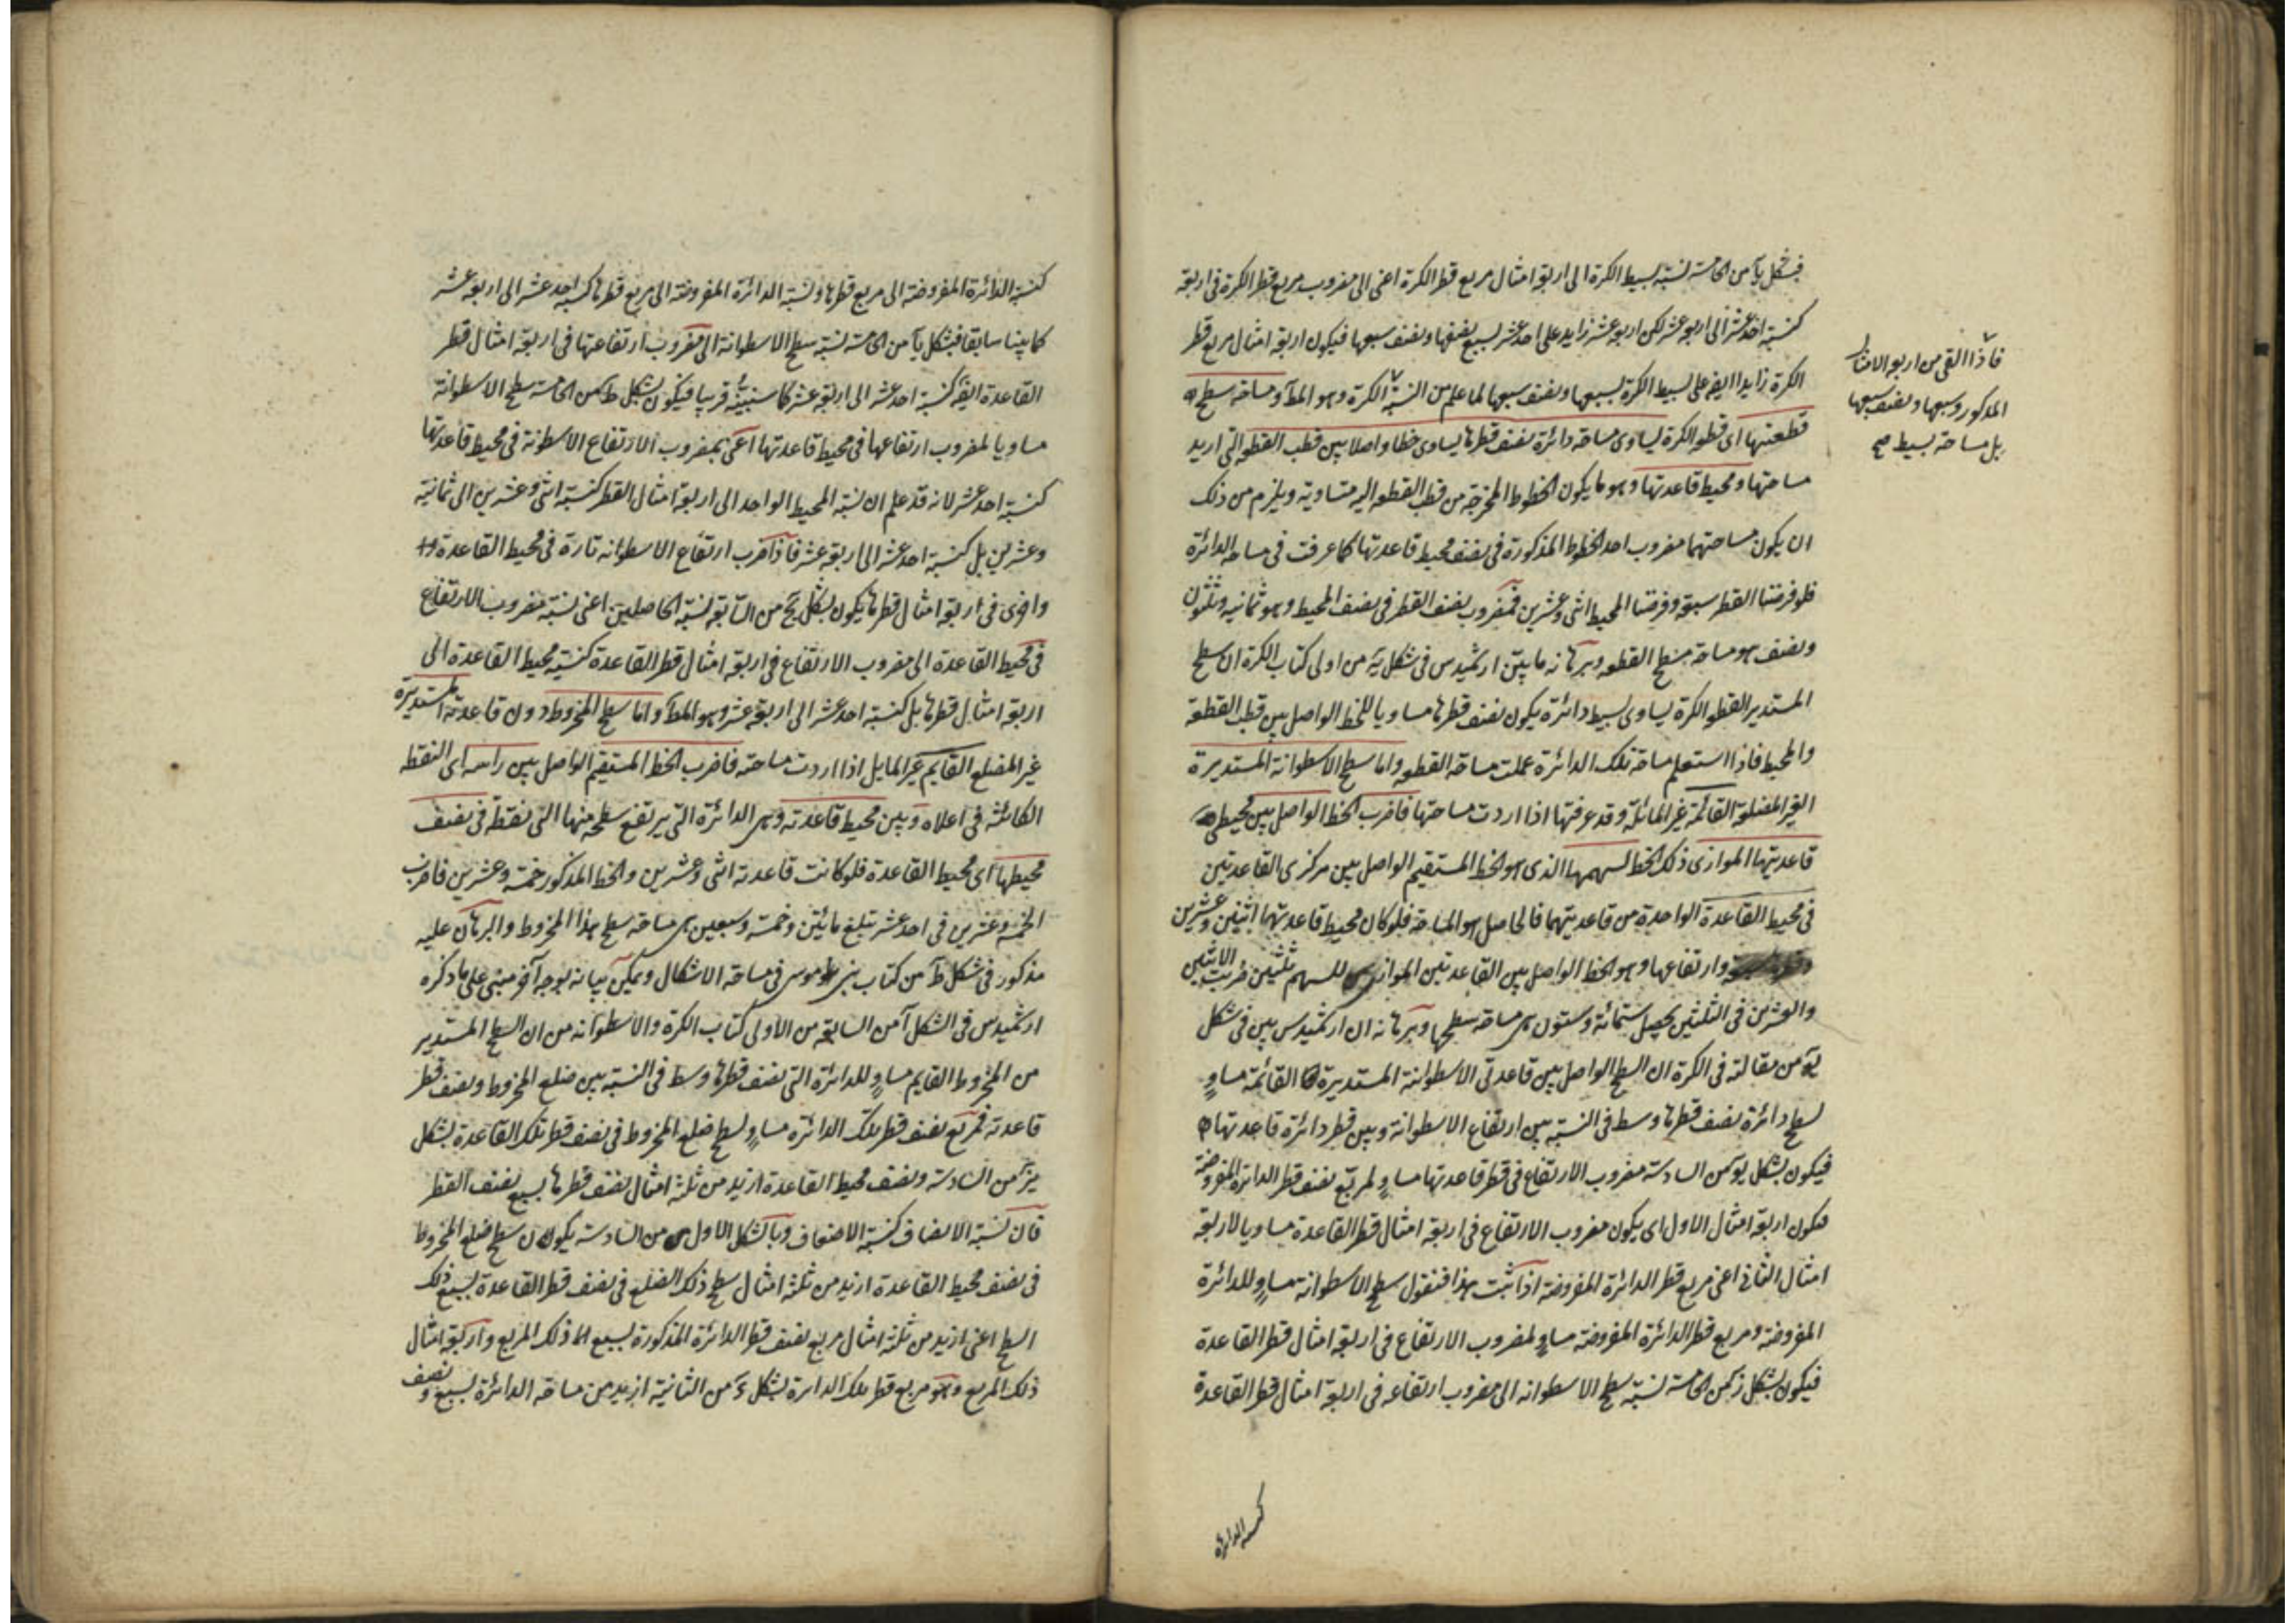 فبشكل يا من الخامسة نسبة بسيط الكرة الى اربعة امثال مربع قطر الكرة اعنى الى مضروب مربع قطر الكرة فى اربعة
كنسبة احد عشر الى اربعة عشر لكن اربعة عشر زايد على احد عشر بسبع نصفها ونصف سبعها فيكون اربعة امثال مربع قطر
الكرة زايدا ايضا على بسيط الكرة بسبعها ونصف سبعها لما علم من النسبة الكرة وهو المط واما مساحة سطح
قطعتها اى قطعة الكرة يساوى مساحة دائرة نصف قطرها يساوى خطا واصلا بين قطب القطعة التى اريد
مساحتها ومحيط قاعدتها وهو ما يكون الخطوط المخرجة من قطب القطعة اليه متساوية ويلزم من ذلك
ان يكون مساحتهما مضروب احد الخطوط المذكورة فى نصف محيط قاعدتها كما عرفت فى مساحة الدائرة
فلو فرضنا القطر سبعة وفرضنا المحيط اثنى وعشرين فمضروب نصف القطر فى نصف المحيط وهو ثمانيه وثلثون
ونصف هو مساحة سطح القطعه وبرهانه ما بين ارشميدس فى شكل من اولى كتاب الكرة ان سطح
المستدير لقطعة الكرة يساوى بسيط دائرة يكون نصف قطرها مساويا للخط الواصل بين قطب القطعة
والمحيط فاذا استعلم مساحة تلك الدائرة عملت مساحة القطعه واما سطح الاسطوانة المستديرة
الغير المضلعة القائمة غير المائلة وقد عرفتها اذا اردت مساحتها فاضرب الخط الواصل بين محيطى
قاعدتيها الموازى ذلك الخط لسهمها الذى هو الخط المستقيم الواصل بين مركزى القاعدتين
فى محيط القاعدة الواحدة من قاعدتيهما فالحاصل هو المساحة فلو كان محيط قاعدتهما اثنين وعشرين
وارتفاعها وهو الخط الواصل بين القاعدتين الموازى للسهم ثلثين ضربت الاثنين
والعشرين فى الثلثين يحصل ستمائة وستون هى مساحة سطحها وبرهانه ان ارشميدس بين فى شكل
يو من مقالته فى الكرة ان السطح الواصل بين قاعدتى الاسطوانة المستديرة القائمة مساو
لسطح دائرة نصف قطرها وسط فى النسبة بين ارتفاع الاسطوانة وبين قطر دائرة قاعدتها
فيكون بشكل يو من السادسة مضروب الارتفاع فى قطر قاعدتها مساو لمربع نصف قطر الدائرة المفروضة
فيكون اربعة امثال الاول اى يكون مضروب الارتفاع فى اربعة امثال قطر القاعدة مساويا لاربعة
امثال الثانى اعنى مربع قطر الدائرة المفروضة اذا ثبت هذا فنقول سطح الاسطوانة مساو للدائرة
المفروضة ومربع قطر الدائرة المفروضة مساو لمضروب الارتفاع فى اربعة امثال قطر القاعدة
فيكون بشكل ز من الخامسة نسبة سطح الاسطوانه الى مضروب ارتفاعه فى اربعة امثال قطر القاعدة
كنسبة الدائرة
فاذا القى من اربعة الامثال
المذكور سبعها ونصف سبعها
بل مساحة بسيط صح
كنسبة الدائرة المفروضة الى مربع قطرها ونسبة الدائرة المفروضة الى مربع قطرها كنسبة احد عشر الى اربعة عشر
كما بينا سابقا فبشكل يا من الخامسة نسبة سطح الاسطوانة الى مضروب ارتفاعها فى اربعة امثال قطر
القاعدة ايضا كنسبة احد عشر الى اربعة عشر كما سنبينه قريبا فيكون بشكل ط من الخامسة سطح الاسطوانة
مساويا لمضروب ارتفاعها فى محيط قاعدتها اعنى بمضروب الارتفاع الاسطوانة فى محيط قاعدتها
كنسبة احد عشر لانه قد علم ان نسبة المحيط الواحد الى اربعة امثال القطر كنسبة اثنى وعشرين الى ثمانية
وعشرين بل كنسبة احد عشر الى اربعة عشر فاذا ضرب ارتفاع الاسطوانه تارة فى محيط القاعدة
واخرى فى اربعة امثال قطرها يكون بشكل يح من السابعة نسبة الحاصلين اعنى نسبة مضروب الارتفاع
فى محيط القاعدة الى مضروب الارتفاع فى اربعة امثال قطر القاعدة كنسبة محيط القاعدة الى
اربعة امثال قطرها بل كنسبة احد عشر الى اربعة عشر وهو المط واما سطح المخروط دون قاعدته المستديرة
غير المضلع القايم غير المايل اذا اردت مساحته فاضرب الخط المستقيم الواصل بين راسه اى النقطة
الكائنة فى اعلاه وبين محيط قاعدته وهى الدائرة التى يرتفع سطحه منها الى نقطة فى نصف
محيطها اى محيط القاعدة فلو كانت قاعدته اثنى وعشرين والخط المذكور خمسة وعشرين فاضرب
الخمسة وعشرين فى احد عشر تبلغ مائتين وخمسة وسبعين هى مساحة سطح هذا المخروط والبرهان عليه
مذكور فى شكل ط من كتاب بنى موسى فى مساحة الاشكال ويمكن بيانه بوجه آخر مبنى على ما ذكره
ارشميدس فى الشكل من السابعة من الاولى كتاب الكرة والاسطوانه من ان السطح المستدير
من المخروط القايم مساو للدائرة التى نصف قطرها وسط فى النسبة بين ضلع المخروط ونصف قطر
قاعدته فمربع نصف قطر تلك الدائرة مساو لسطح ضلع المخروط فى نصف قطر تلك القاعدة بشكل
يز من السادسة ونصف محيط القاعدة ازيد من ثلثة امثال نصف قطرها بسبع نصف القطر
فان نسبة الانصاف كنسبة الاضعاف وبالشكل الاول من السادسة يكون سطح ضلع المخروط
فى نصف محيط القاعدة ازيد من ثلثة امثال سطح ذلك الضلع فى نصف قطر القاعدة بسبع ذلك
السطح اعنى ازيد من ثلثة امثال مربع نصف قطر الدائرة المذكورة بسبع ذلك المربع واربعة امثال
ذلك المربع وهو مربع قطر تلك الدائرة بشكل من الثانية ازيد من مساحة الدائرة بسبع ونصف